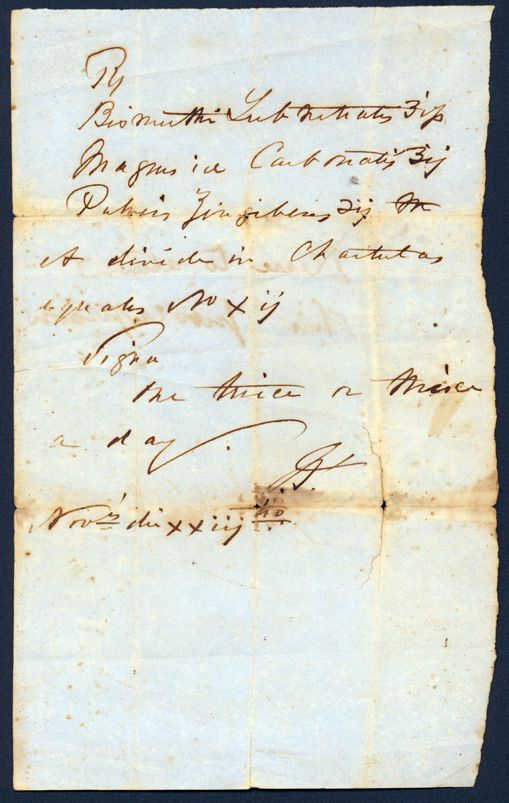 ℞
Bismuthi Subnitratis ʒiss
Magnesiæ Carbonatis ʒij
Pulveris Zingiberis ʒij M
et divide in Chartulas
equales No xij
Signa
One twice or thrice
a day
Novr die xxiij